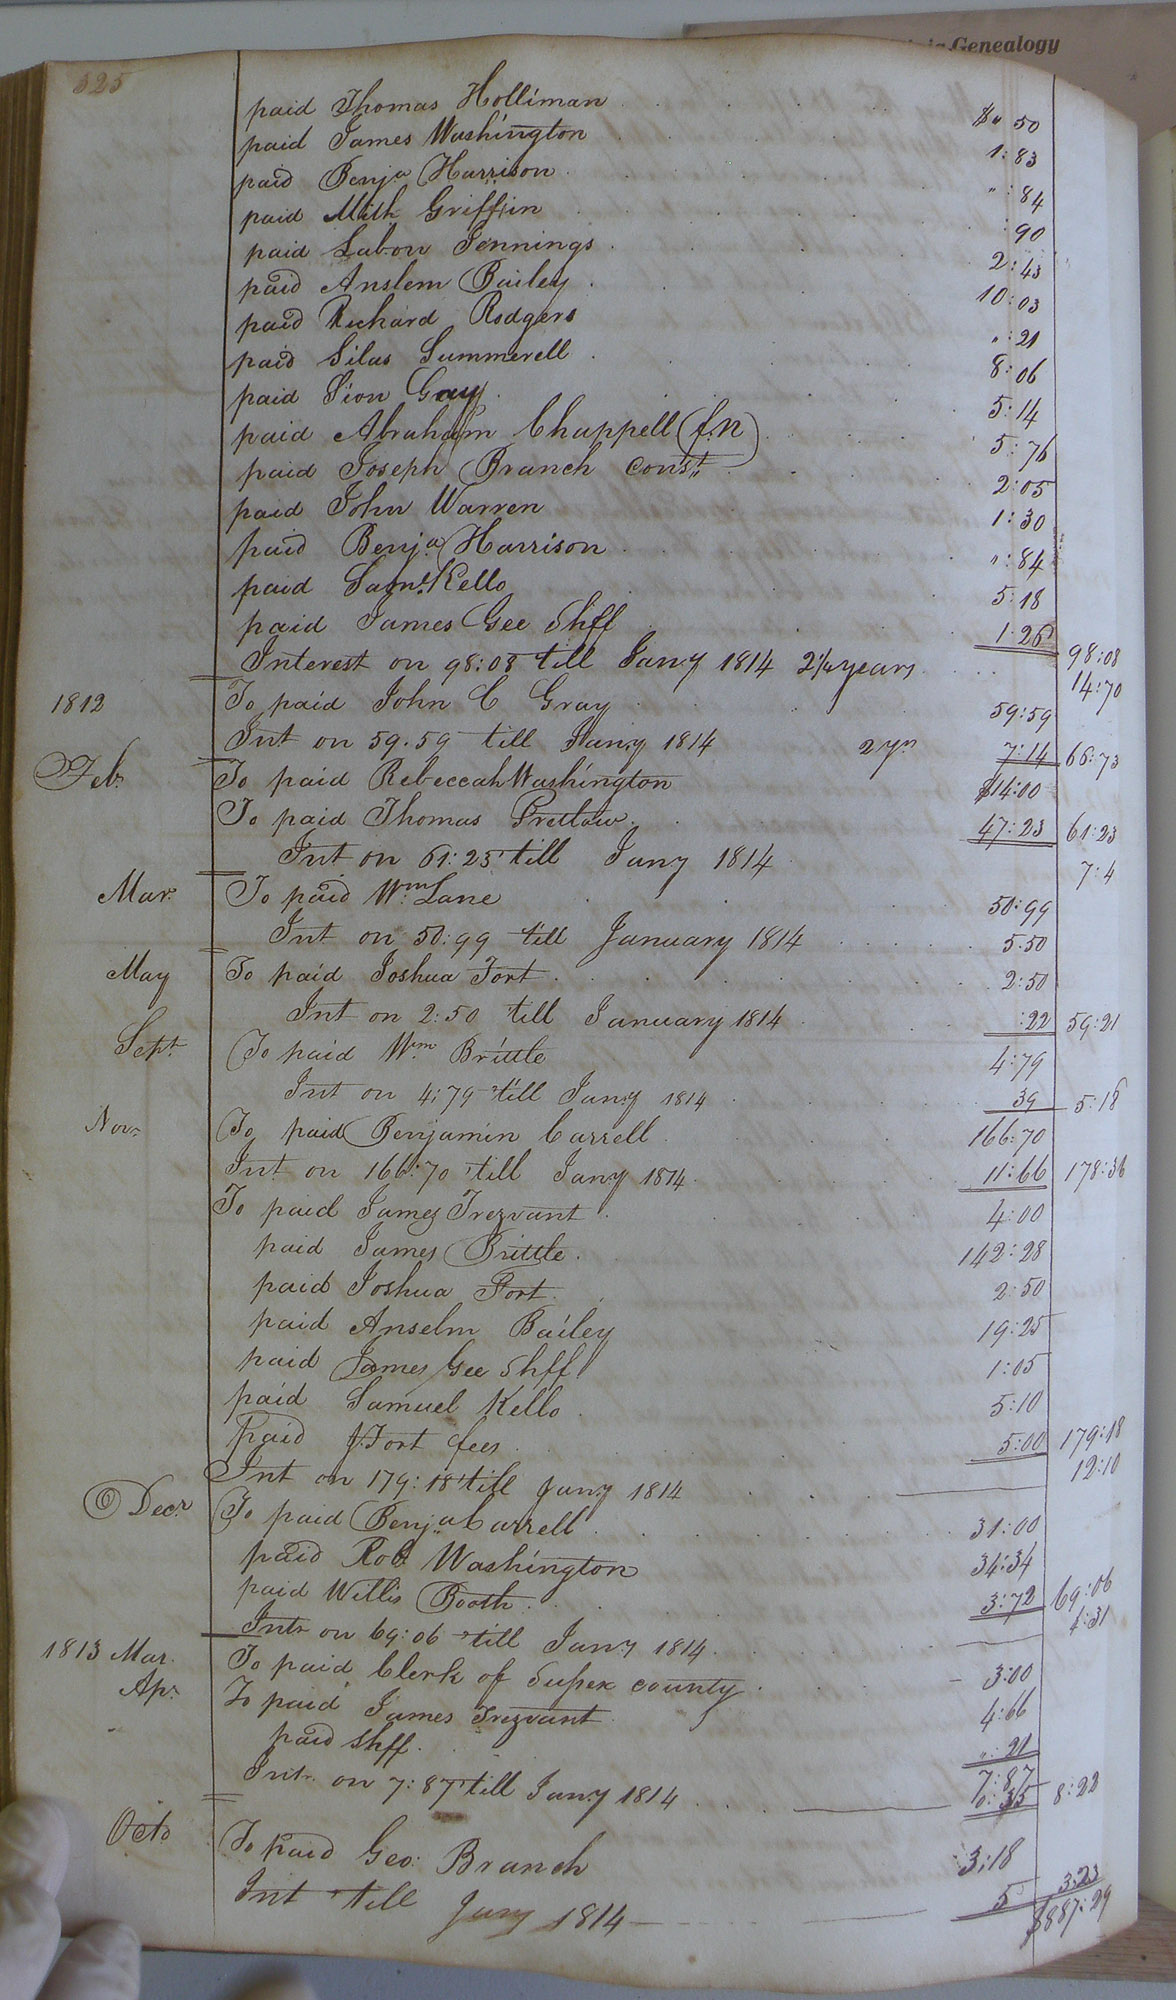 Genealogy
325
paid Thomas Holliman $ " 50
paid James Washington 1:83
paid Benja Harrison " : 84
paid Griffin : 90
paid Labon Jennings 2:43
paid Anslem Bailey 10:03
paid Richard Rodgers " : 21
paid Silas Summerell 8:06
paid Sion Gray 5:14
paid Abraham Chappell (f.n) 5:76
paid Joseph Branch Const. 2:05
paid John Warren 1:30
paid Benja Harrison " : 84
paid Saml. Kello 5:18
paid James Gee Shff 1.26 98:08
Interest on 98:08 till Jany 1814 2½ years 14:70
1812 To paid John C Gray 59:59
Int on 59.59 till Jany 1814 2 yrs 7:14 66:73
Feb. To paid Rebeccah Washington $14:00
To paid Thomas Pretlow 47:23 61:23
Int on 61:23 till Jany 1814 7:4
Mar. To paid Wm. Lane 50:99
Int on 50:99 till January 1814 5.50
May To paid Joshua Fort 2:50
Int on 2:50 till January 1814 :22 59:21
Sept. To paid Wm Brittle 4:79
Int on 4;79 till Jany 1814 39 5:18
Nov. To paid Benjamin Carrell 166:70
Int. on 166:70 till Jany 1814 11:66 178:36
To paid James Trezvant 4:00
paid James Brittle 142:28
paid Joshua Fort 2:50
paid Anselm Bailey 19:25
paid James Gee Shff 1:05
paid Samuel Kello 5:10
Paid J. Fort fees 5:00 179:18
Int on 179:18 till Jany 1814 12:10
Decr To paid Benja. Carrell 31:00
paid Rob Washington 34:34
paid Willis Booth 3:72 69:06
Int. on 69:06 till Jany 1814 4:31
1813 Mar. To paid Clerk of Sussex county 3:00
Ap. To paid James Trezvant 4:66
paid Shff. " : 21
7:87
Int. on 7:87 till Jany 1814 0:35 8:22
Octo To paid Geo: Branch 3;18
Int till Jany 1814 5 3:23
$887:29